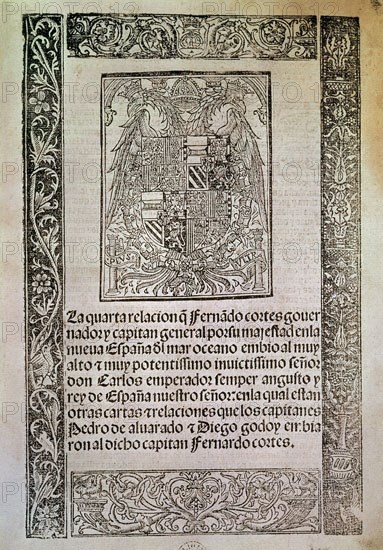 La quarta relacion q̃ Fernãdo cortes gouer
nador y capitan general por su majestad enla
nueua España d̃l mar oceano embio al muy
alto ⁊ muy potentissimo inuictissimo señor
don Carlos emperador semper augusto y
rey de España nuestro señor: enla qual estan
otras cartas ⁊ relaciones que los capitanes
Pedro de aluarado ⁊ Diego godoy embia
ron al dicho capitan Fernardo cortes.